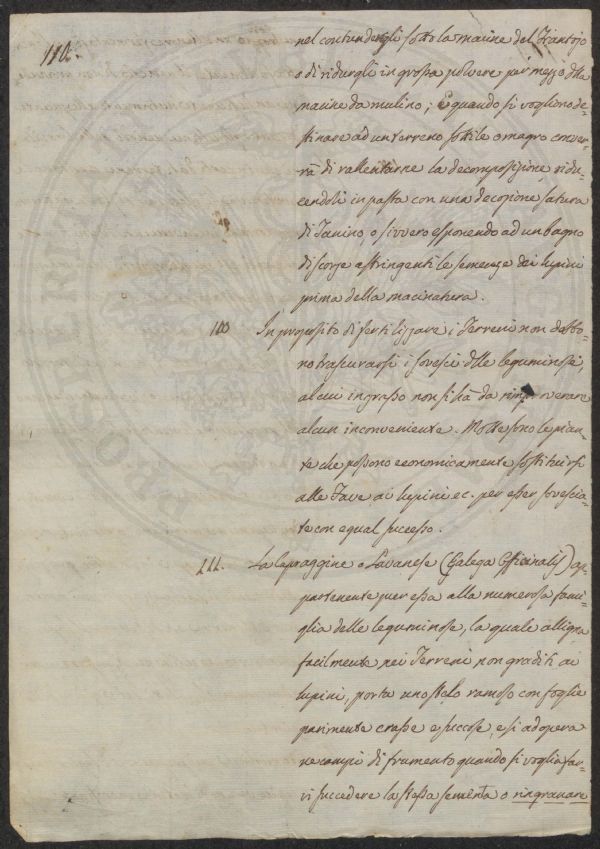 112.
nel contundergli sotto la macine del Frantojo
o di ridurgli in grossa polvere per mezzo della
macine da mulino; E quando si vogliono de-
stinare ad un terreno sottile o magro conver-
rà di rallentarne la decomposizione, ridu-
cendoli in pasta con una decozione satura
di Tanino, o sivvero esponendo ad un bagno
di scorze astringenti le semenze dei lupini
prima della macinatura.
110 In proposito di fertilizzare i Terreni non debbo-
no trascurarsi i sovesci delle leguminose,
al cui ingrasso non si hà da rimproverare
alcun inconveniente. Molte sono le pian-
te che possono economicamente sostituirsi
alle Fave, ai lupini ec. per esser sovescia-
te con egual successo.
111. La Capraggine o Lavanese (Galega Officinalis) ap-
partenente per essa alla numerosa fami-
glia delle leguminose, la quale alligna
facilmente nei Terreni non graditi ai
lupini, porta uno stelo ramoso con foglie
parimente crasse e succose, e si adopera
ne campi di frumento quando si voglia far-
vi succedere la stessa sementa o ringranare